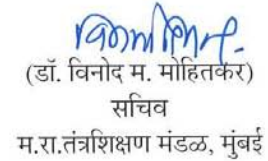 (डॉ. विनोद म. मोहितकर)
सचिव
म.रा.तंत्रशिक्षण मंडळ, मुंबई